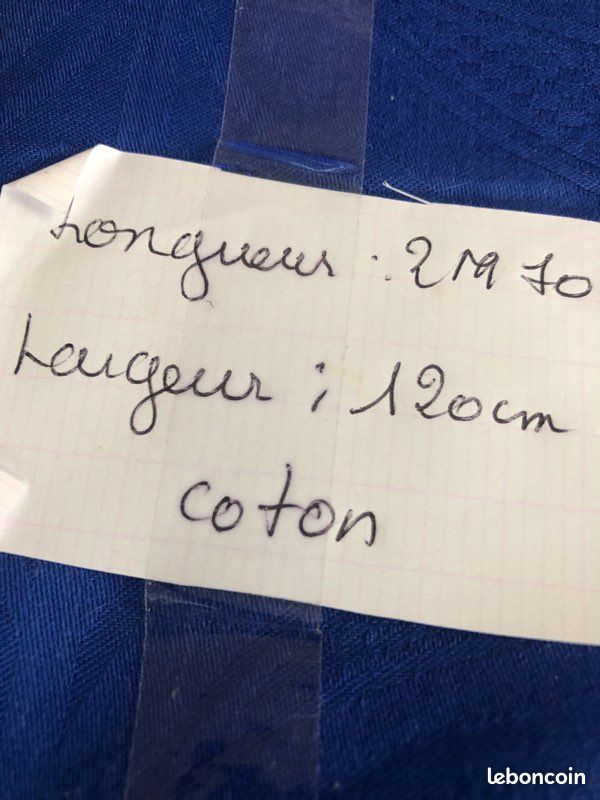 Longueur : 2M70
Largeur : 120cm
coton
leboncoin